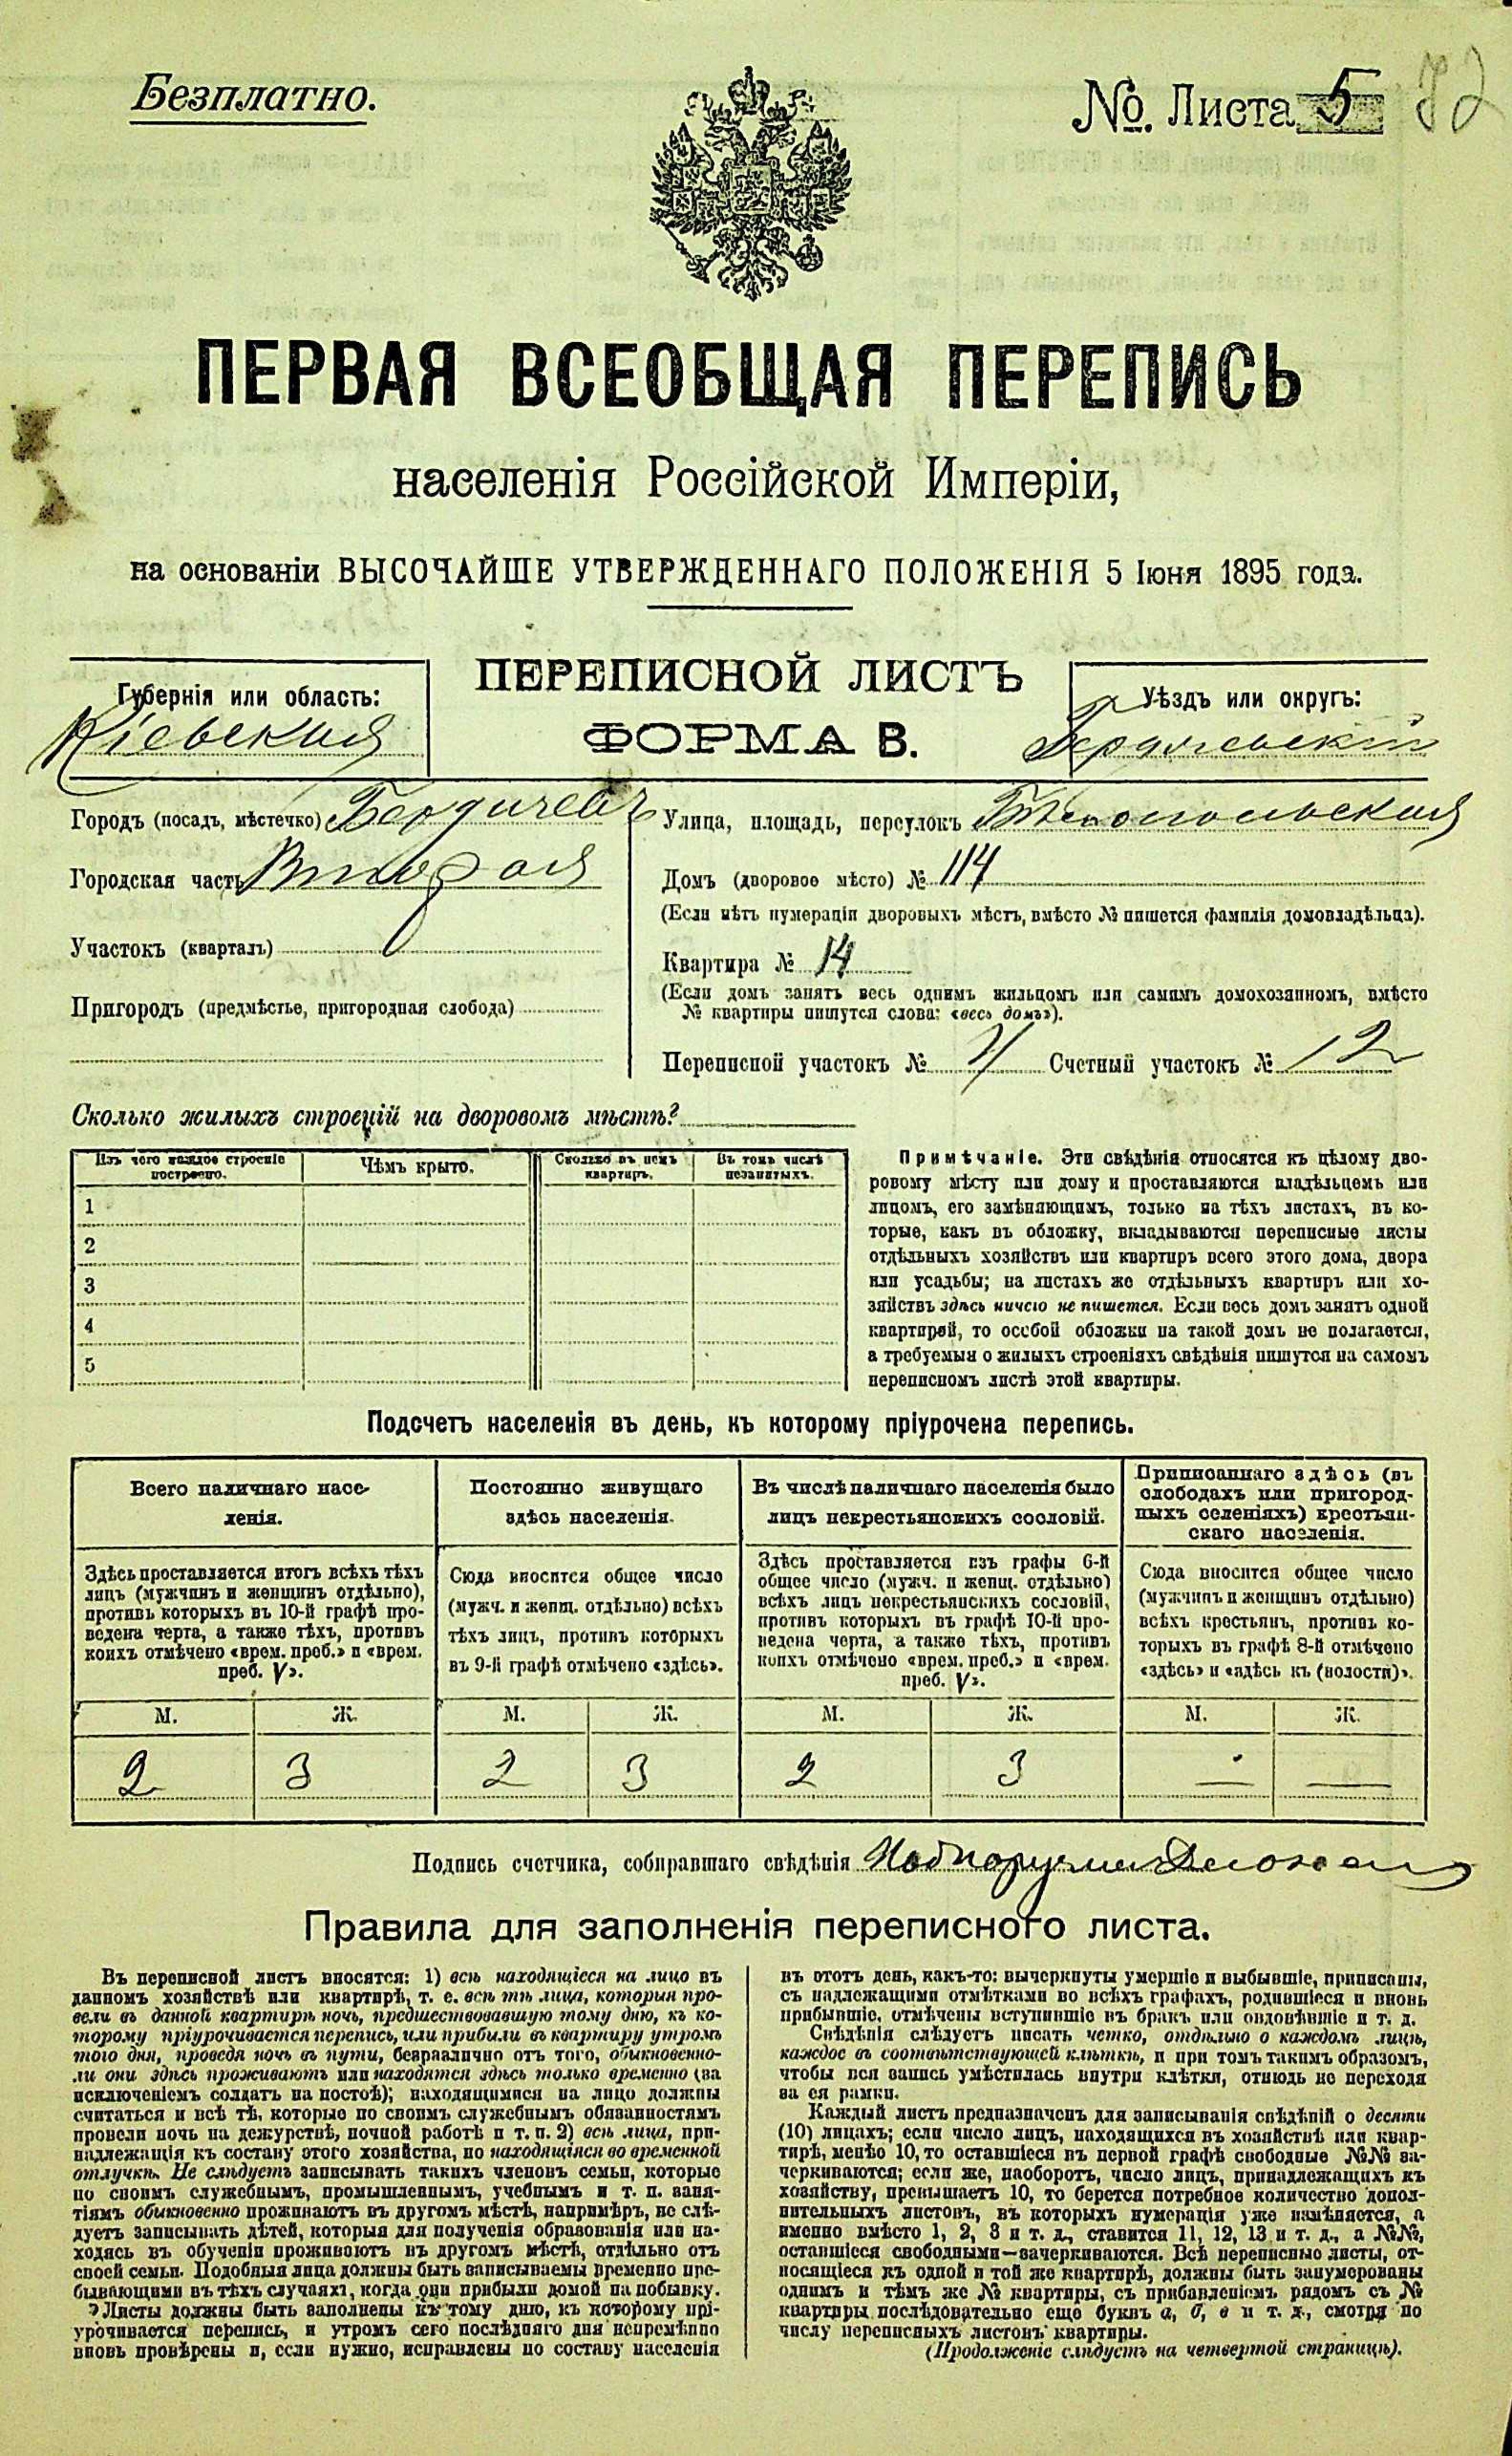 Безплатно.
№. Листа 5
ПЕРВАЯ ВСЕОБЩАЯ ПЕРЕПИСЬ
населенія Россійской Имперіи,
на основаніи ВЫСОЧАЙШЕ УТВЕРЖДЕННАГО ПОЛОЖЕНІЯ 5 Іюня 1895 года.
ПЕРЕПИСНОЙ ЛИСТЪ
ФОРМА В.
Губернія или область:
Кіевская
Уѣздъ или округъ:
Городъ (посадъ, мѣстечко) Бердичевъ
Городская часть Вторая
Участокъ (кварталъ)
Пригородъ (предмѣстье, пригородная слобода)
Улица, площадь, переулокъ Бѣлопольская
Домъ (дворовое мѣсто) № 114
(Если нѣтъ нумераціи дворовыхъ мѣстъ, вмѣсто № пишется фамилія домовладѣльца).
Квартира № 14
(Если домъ занятъ весь однимъ жильцомъ или самимъ домохозяиномъ, вмѣсто
№ квартиры пишутся слова: «весь домъ»).
Переписной участокъ № 4 Счетный участокъ № 12
Сколько жилыхъ строеній на дворовомъ мѣстѣ?
Изъ чего каждое строеніе
построено.
Чѣмъ крыто.
Сколько въ немъ
квартиръ.
Въ томъ числѣ
незанятыхъ.
1
2
3
4
5
Примѣчаніе. Эти свѣдѣнія относятся къ цѣлому дво-
ровому мѣсту или дому и проставляются владѣльцемъ или
лицомъ, его замѣняющимъ, только на тѣхъ листахъ, въ ко-
торые, какъ въ обложку, вкладываются переписные листы
отдѣльныхъ хозяйствъ или квартиръ всего этого дома, двора
или усадьбы; на листахъ же отдѣльныхъ квартиръ или хо-
зяйствъ здѣсь ничего не пишется. Если весь домъ занятъ одной
квартирой, то особой обложки на такой домъ не полагается,
а требуемыя о жилыхъ строеніяхъ свѣдѣнія пишутся на самомъ
переписномъ листѣ этой квартиры.
Подсчетъ населенія въ день, къ которому пріурочена перепись.
Всего наличнаго насе-
ленія.
Постоянно живущаго
здѣсь населенія.
Въ числѣ наличнаго населенія было
лицъ некрестьянскихъ сословій.
Приписаннаго здѣсь (въ
слободахъ или пригород-
ныхъ селеніяхъ) крестьян-
скаго населенія.
Здѣсь проставляется итогъ всѣхъ тѣхъ
лицъ (мужчинъ и женщинъ отдѣльно),
противъ которыхъ въ 10-й графѣ про-
ведена черта, а также тѣхъ, противъ
коихъ отмѣчено «врем. преб.» и «врем.
преб. V».
Сюда вносится общее число
(мужч. и женщ. отдѣльно) всѣхъ
тѣхъ лицъ, противъ которыхъ
въ 9-й графѣ отмѣчено «здѣсь».
Здѣсь проставляется изъ графы 6-й
общее число (мужч. и женщ. отдѣльно)
всѣхъ лицъ некрестьянскихъ сословій,
противъ которыхъ въ графѣ 10-й про-
ведена черта, а также тѣхъ, противъ
коихъ отмѣчено «врем. преб.» и «врем.
преб. V».
Сюда вносится общее число
(мужчинъ и женщинъ отдѣльно)
всѣхъ крестьянъ, противъ ко-
торыхъ въ графѣ 8-й отмѣчено
«здѣсь» и «здѣсь къ (волости)».
М. Ж. М. Ж. М. Ж. М. Ж.
2 3 2 3 2 3 — —
Подпись счетчика, собиравшаго свѣдѣнія
Правила для заполненія переписного листа.
Въ переписной листъ вносятся: 1) всѣ находящіеся на лицо въ
данномъ хозяйствѣ или квартирѣ, т. е. всѣ тѣ лица, которыя про-
вели въ данной квартирѣ ночь, предшествовавшую тому дню, къ ко-
торому пріурочивается перепись, или прибыли въ квартиру утромъ
того дня, проведя ночь въ пути, безразлично отъ того, обыкновенно-
ли они здѣсь проживаютъ или находятся здѣсь только временно (за
исключеніемъ солдатъ на постоѣ); находящимися на лицо должны
считаться и всѣ тѣ, которые по своимъ служебнымъ обязанностямъ
провели ночь на дежурствѣ, ночной работѣ и т. п. 2) всѣ лица, при-
надлежащія къ составу этого хозяйства, но находящіяся во временной
отлучкѣ. Не слѣдуетъ записывать такихъ членовъ семьи, которые
по своимъ служебнымъ, промышленнымъ, учебнымъ и т. п. заня-
тіямъ обыкновенно проживаютъ въ другомъ мѣстѣ, напримѣръ, не слѣ-
дуетъ записывать дѣтей, которыя для полученія образованія или на-
ходясь въ обученіи проживаютъ въ другомъ мѣстѣ, отдѣльно отъ
своей семьи. Подобныя лица должны быть записываемы временно пре-
бывающими въ тѣхъ случаяхъ, когда они прибыли домой на побывку.
Листы должны быть заполнены къ тому дню, къ которому прі-
урочивается перепись, и утромъ сего послѣдняго дня непремѣнно
вновь провѣрены и, если нужно, исправлены по составу населенія
въ этотъ день, какъ-то: вычеркнуты умершіе и выбывшіе, приписаны,
съ надлежащими отмѣтками во всѣхъ графахъ, родившіеся и вновь
прибывшіе, отмѣчены вступившіе въ бракъ или овдовѣвшіе и т. д.
Свѣдѣнія слѣдуетъ писать четко, отдѣльно о каждомъ лицѣ,
каждое въ соотвѣтствующей клѣткѣ, и при томъ такимъ образомъ,
чтобы вся запись умѣстилась внутри клѣтки, отнюдь не переходя
за ея рамки.
Каждый листъ предназначенъ для записыванія свѣдѣній о десяти
(10) лицахъ; если число лицъ, находящихся въ хозяйствѣ или квар-
тирѣ, менѣе 10, то оставшіеся въ первой графѣ свободные №№ за-
черкиваются; если же, наоборотъ, число лицъ, принадлежащихъ къ
хозяйству, превышаетъ 10, то берется потребное количество допол-
нительныхъ листовъ, въ которыхъ нумерація уже измѣняется, а
именно вмѣсто 1, 2, 3 и т. д., ставится 11, 12, 13 и т. д., а №№,
оставшіеся свободными—зачеркиваются. Всѣ переписные листы, от-
носящіеся къ одной и той же квартирѣ, должны быть занумерованы
однимъ и тѣмъ же № квартиры, съ прибавленіемъ рядомъ съ №
квартиры послѣдовательно еще буквъ а, б, в и т. д., смотря по
числу переписныхъ листовъ квартиры.
(Продолженіе слѣдуетъ на четвертой страницѣ).